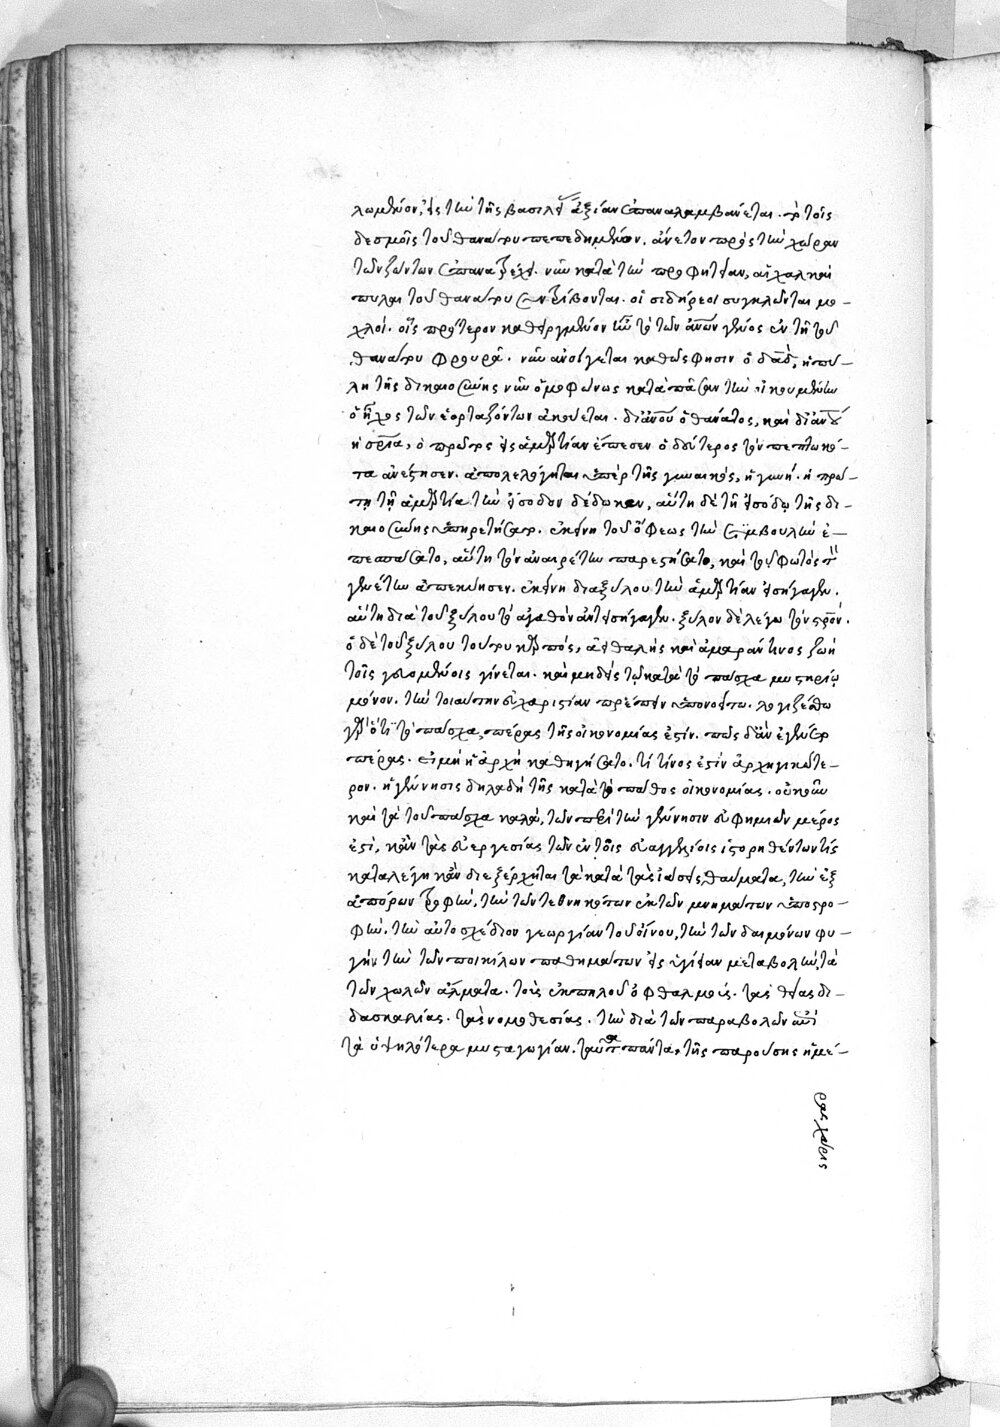 λωμένον, εἰς τὴν τῆς βασιλείας ἀξίαν ἐπαναλαμβάνεται. τὸ τοῖς
δεσμοῖς τοῦ θανάτου πεπεδημένον, ἄνετον πρὸς τὴν χώραν
τῶν ζώντων ἐπανατρέχει. νῦν κατὰ τὴν προφητείαν, αἱ χαλκαῖ
πύλαι τοῦ θανάτου συντρίβονται. οἱ σιδήρεοι συγκλῶνται μο-
χλοί. οἷς πρότερον καθειργμένον ἦν τὸ τῶν ἀνων γένος ἐν τῇ τοῦ
θανάτου φρουρᾷ. νῦν ἀνοίγεται καθώς φησιν ὁ δαδ, ἡ πύ-
λη τῆς δικαιοσύνης νῦν ὁμοφώνως κατὰ πᾶσαν τὴν οἰκουμένην
ὁ ἦχος τῶν ἑορταζόντων ἀκούεται. δι' ἀνου ὁ θάνατος, καὶ δι' ἀνου
ἡ σρία, ὁ πρῶτος εἰς ἁμαρτίαν ἔπεσεν ὁ δεύτερος τὸν πεπτωκό-
τα ἀνέστησεν. ἀπολελόγηται ὑπὲρ τῆς γυναικὸς, ἡ γυνή. ἡ πρώ-
τη τῇ ἁμαρτία τὴν εἴσοδον δέδωκεν, αὕτη δὲ τῇ εἰσόδῳ τῆς δι-
καιοσύνης ὑπηρετήσατο. ἐκείνη τοῦ ὄφεως τὴν συμβουλὴν ἐ-
πεσπάσατο, αὕτη τὸν ἀναιρέτην παρεστήσατο, καὶ τοῦ φωτὸς τὸν
γενέτην ἀπεκύησεν. ἐκείνη διὰ ξύλου τὴν ἁμαρτίαν εἰσήγαγεν.
αὕτη διὰ τοῦ ξύλου τὸ ἀγαθὸν ἀντεισήγαγεν. ξύλον δὲ λέγω τὸν σρόν.
ὁ δὲ τοῦ ξύλου τούτου καρπὸς, ἀειθαλὴς καὶ ἀμάραντος ζωὴ
τοῖς γευομένοις γίνεται. καὶ μηδεὶς τῷ κατὰ τὸ πάσχα μυστηρίῳ
μόνον, τὴν τοιαύτην εὐχαριστίαν πρέπειν ὑπονοείτω. λογιζέσθω
γὰρ ὅτι τὸ πάσχα, πέρας τῆς οἰκονομίας ἐστίν. πῶς δ' ἂν ἐγένετο
πέρας. εἰ μὴ ἡ ἀρχὴ καθηγήσατο. τί τίνος ἐστὶν ἀρχηγικώτε-
ρον. ἡ γέννησις δηλαδὴ τῆς κατὰ τὸ πάθος οἰκονομίας. οὐκοῦν
καὶ τὰ τοῦ πάσχα καλά, τῶν περὶ τὴν γέννησιν εὐφημιῶν μέρος
ἐστὶ, κἂν τὰς εὐεργεσίας τῶν ἐν τοῖς εὐαγγελίοις ἱστορηθέντων τίς
καταλέγῃ κἂν διεξέρχηται τὰ κατὰ τὰς ἰάσεις θαύματα, τὴν ἐξ
ἀπόρων τροφὴν, τὴν τῶν τεθνηκότων ἐκ τῶν μνημάτων ὑποστρο-
φὴν. τὴν αὐτοσχέδιον γεωργίαν τοῦ οἴνου, τὴν τῶν δαιμόνων φυ-
γὴν, τὴν τῶν ποικίλων παθημάτων εἰς ὑγίειαν μεταβολὴν, τὰ
τῶν χωλῶν ἅλματα. τοὺς ἐκ πηλοῦ ὀφθαλμοὺς. τὰς θείας δι-
δασκαλίας. τὰς νομοθεσίας. τὴν διὰ τῶν παραβολῶν ἐπὶ
τὰ ὑψηλότερα μυσταγωγίαν. ταῦτα πάντα, τῆς παρούσης ἡμέ-
ρας χάρις